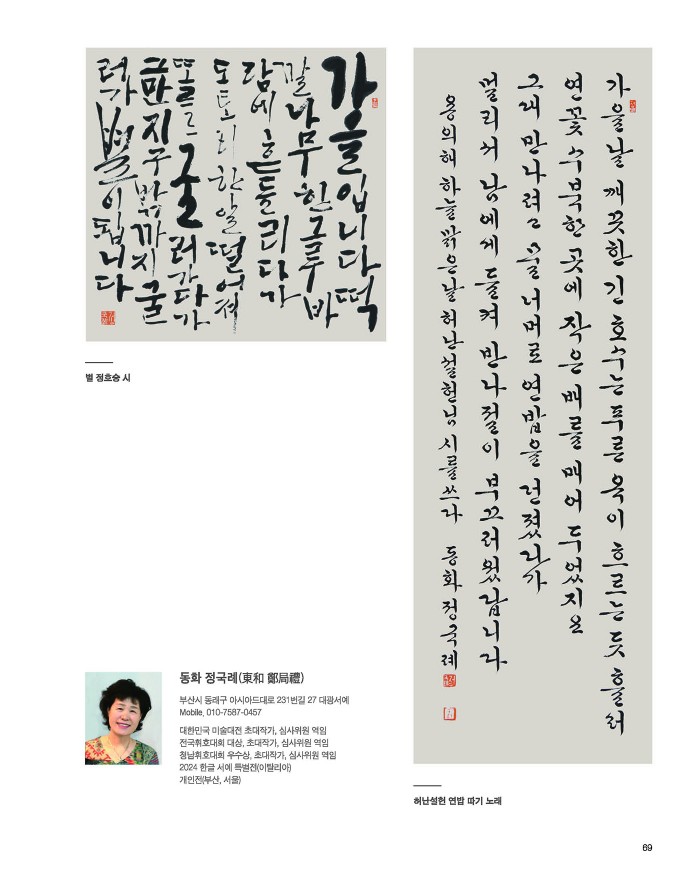 가을입니다떡
갈나무한그루바
람에흔들리다가
도토리한알떨어져
또르르굴러가다가
그만지구밖까지굴
러가별이됩니다
별 정호승 시
가을날 깨끗한 긴 호수는 푸른 옥이 흐르는 듯 흘러
연꽃 수북한 곳에 작은 배를 매어 두었지요
그대 만나려고 물 너머로 연밥을 던졌다가
멀리서 남에게 들켜 반나절이 부끄러웠답니다
용의해 하늘 맑은날 허난설헌님 시를 쓰다 동화 정국례
허난설헌 연밥 따기 노래
동화 정국례(東和 鄭局禮)
부산시 동래구 아시아드대로 231번길 27 대광서예
Mobile. 010-7587-0457
대한민국 미술대전 초대작가, 심사위원 역임
전국휘호대회 대상, 초대작가, 심사위원 역임
청남휘호대회 우수상, 초대작가, 심사위원 역임
2024 한글 서예 특별전(이탈리아)
개인전(부산, 서울)
69